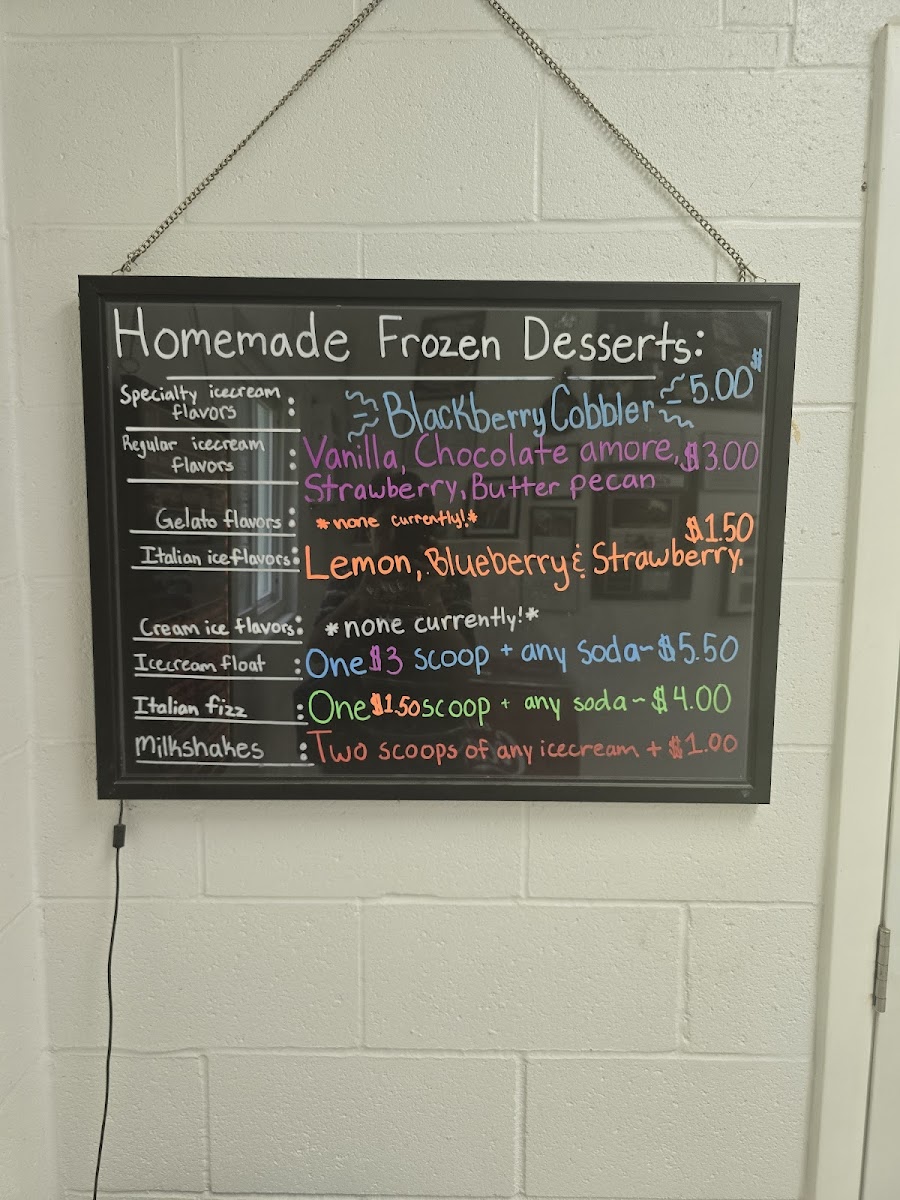 Homemade Frozen Desserts:
Specialty icecream flavors : Blackberry Cobbler 5.00$
Regular icecream flavors : Vanilla, Chocolate amore, $3.00
Strawberry, Butter pecan
Gelato flavors : *none currently!*
$1.50
Italian ice flavors: Lemon, Blueberry & Strawberry.
Cream ice flavors: *none currently!*
Icecream float : One $3 scoop + any soda~$5.50
Italian fizz : One $1.50 scoop + any soda~$4.00
Milkshakes : Two scoops of any icecream + $1.00